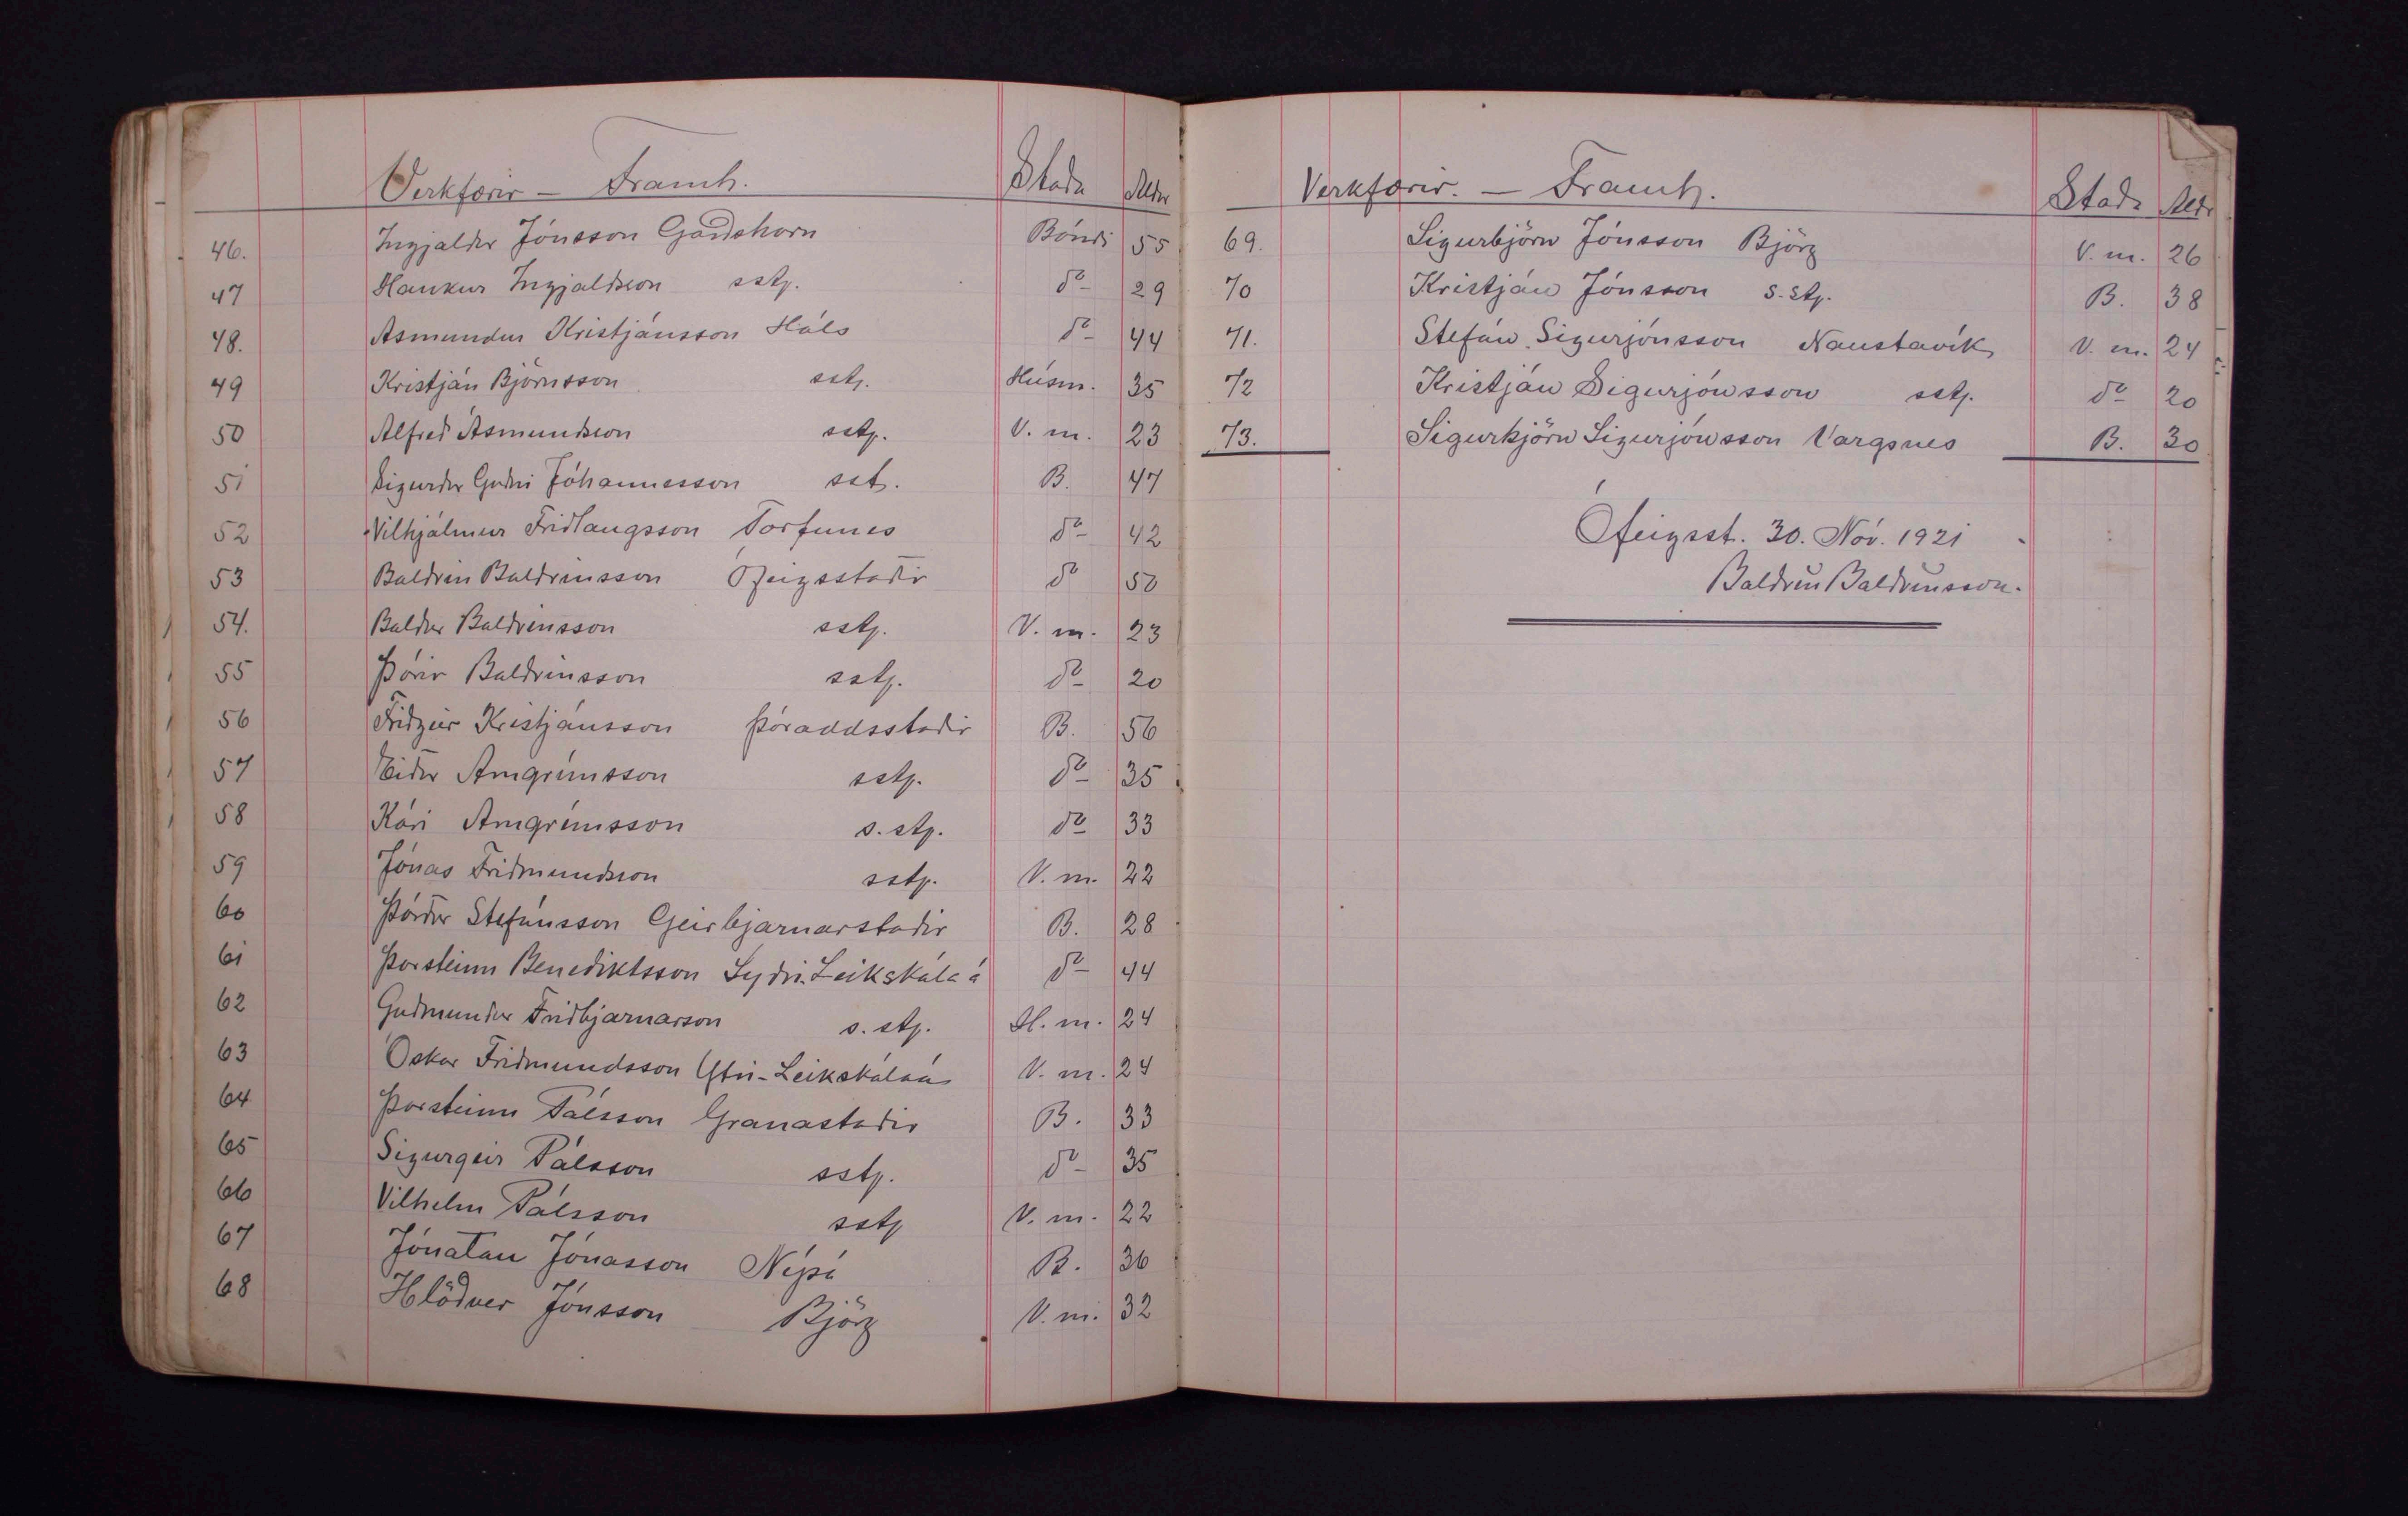 Verkfærir — Framh. Stada Aldur
46. Ingjaldur Jónsson Gaddshorn Bóndi 55
47 Haukur Ingjaldsson sstp. do 29
48. Asmundur Kristjánsson Háls do 44
49 Kristján Björnsson sstp. Húsm. 35
50 Alfred Ásmundsson sstp. V. m. 23
51 Sigurdur Gudni Jóhannesson sst. B. 47
52 Vilhjálmur Fridlaugsson Torfunes do 42
53 Baldvin Baldvinsson Ófeigsstadir do 50
54. Baldur Baldvinsson sstp. V. m. 23
55 Þórir Baldvinsson sstp. do 20
56 Fridgeir Kristjánsson Þóraddsstadir B. 56
57 Eidur Arngrímsson sstp. do 35
58 Kári Arngrímsson s. stp. do 33
59 Jónas Fridmundsson sstp. V. m. 22
60 Þórdur Stefánsson Geirbjarnarstadir B. 28
61 Þorsteinn Benediktsson Sydri-Leikskálaá do 44
62 Gudmundur Fridbjarnarson s. stp. H. m. 24
63 Óskar Fridmundsson Ytri-Leikskálaá V. m. 24
64 Þorsteinn Pálsson Granastadir B. 33
65 Sigurgeir Pálsson sstp. do 35
66 Vilhelm Pálsson sstp V. m. 22
67 Jónatan Jónasson Nípá B. 36
68 Hlödver Jónsson Björg V. m. 32
Verkfærir. — Framh. Stada Aldr
69. Sigurbjörn Jónsson Björg V. m. 26
70 Kristján Jónsson s. stp. B. 38
71. Stefán Sigurjónsson Naustavík V. m. 24
72 Kristján Sigurjónsson sstp. do 20
73. Sigurbjörn Sigurjónsson Vargsnes B. 30
Ófeigsst. 30. Nóv. 1921
Baldvin Baldvinsson.